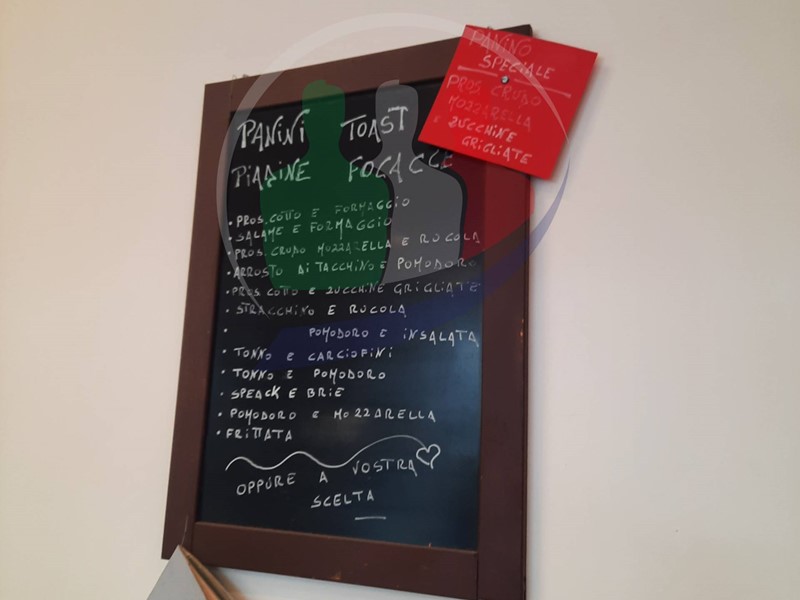 PANINI TOAST
PIADINE FOCACCE
• PROS. COTTO E FORMAGGIO
• SALAME E FORMAGGIO
• PROS. CRUDO MOZZARELLA E RUCOLA
• ARROSTO DI TACCHINO E POMODORO
• PROS COTTO E ZUCCHINE GRIGLIATE
• STRACCHINO E RUCOLA
• POMODORO E INSALATA
• TONNO E CARCIOFINI
• TONNO E POMODORO
• SPEACK E BRIE
• POMODORO E MOZZARELLA
• FRITTATA
OPPURE A VOSTRA
SCELTA
PANINO
SPECIALE
PROS CRUDO
MOZZARELLA
E ZUCCHINE
GRIGLIATE